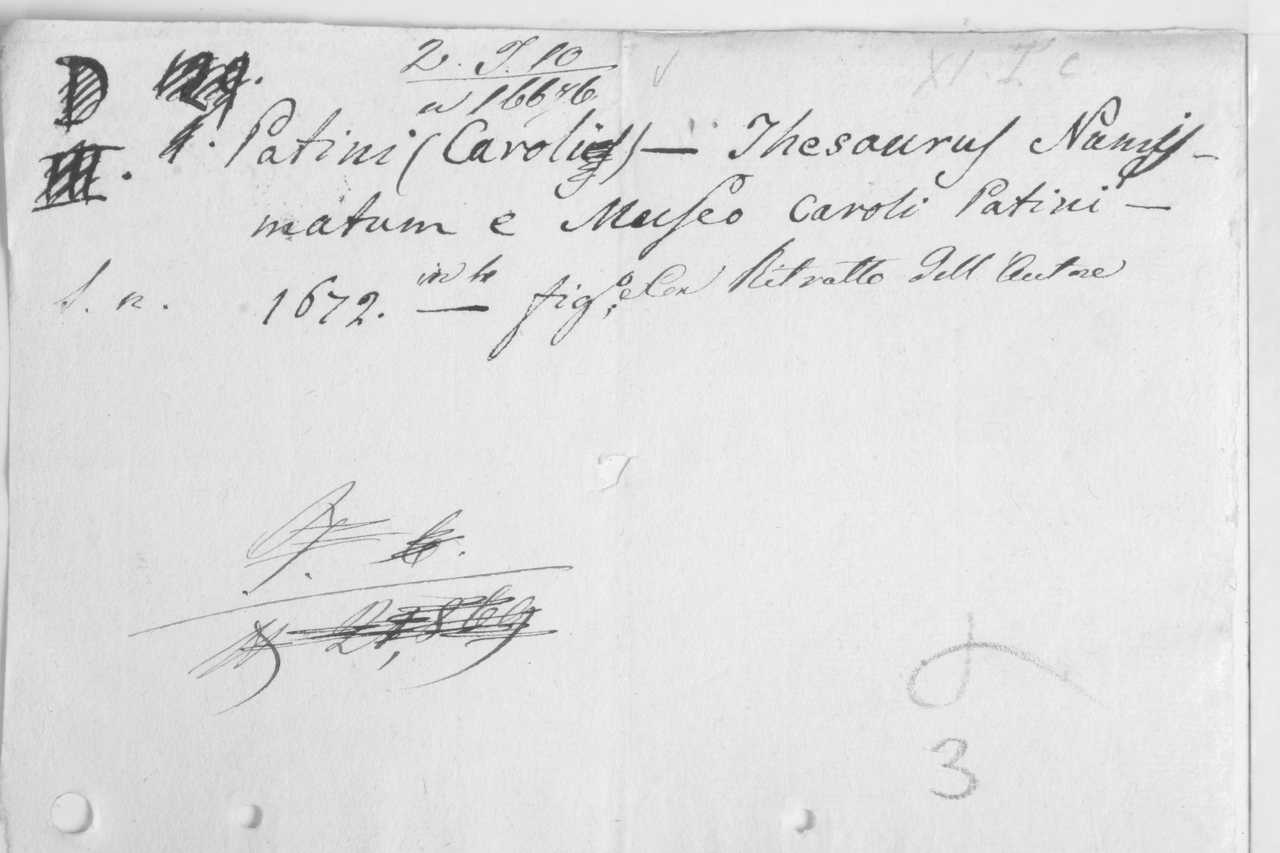 D 29. 2. I. 10
n 16676 XI. I. c.
4. Patini (Caroli) — Thesaurus Numis-
III.
matum e Museo Caroli Patini —
S. n. 1672. — in 4 fig.e Con Ritratto Dell' Autore
3